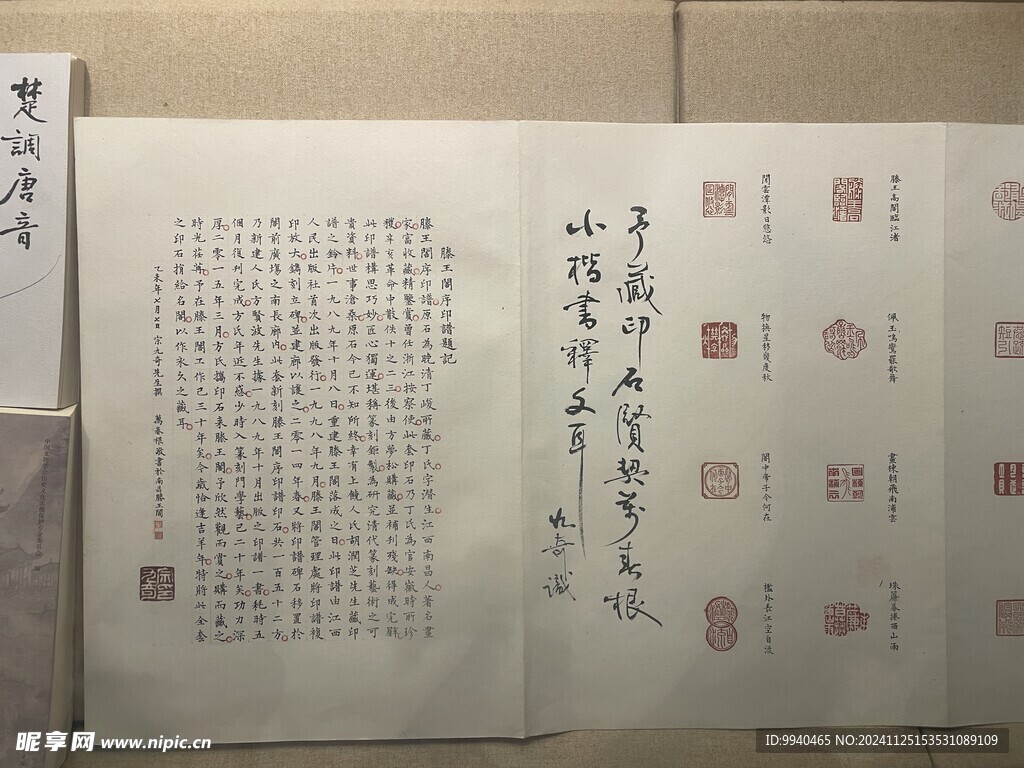 楚調唐音
滕王高閣臨江渚
佩玉鳴鸞罷歌舞
畫棟朝飛南浦雲
珠簾暮捲西山雨
閒雲潭影日悠悠
物換星移幾度秋
閣中帝子今何在
檻外長江空自流
予藏印石賢契萬春根
小楷書釋文耳
九奇識
滕王閣序印譜題記
滕王閣序印譜原石為晚清丁峻所藏丁氏字潛生江西南昌人著名畫
家富收藏精鑒賞曾任浙江按察使此套印石乃丁氏為官安徽時所珍
獲辛亥革命中散佚十之二三後由方夢松購藏並補刊殘缺得成完璧
此印譜構思巧妙匠心獨運堪稱篆刻鉅製為研究清代篆刻藝術之可
貴資料世事滄桑原石今已不知所終幸有上饒人氏胡潤芝先生藏印
譜之鈐片一九八九年十月八日重建滕王閣落成之日此印譜由江西
人民出版社首次出版發行一九九八年九月滕王閣管理處將印譜複
印放大鐫刻立碑並建廊以護之二零一四年春又將印譜碑石移置於
閣前廣場之南長廊內此套新刻滕王閣序印譜印石共一百五十二方
乃新建人氏方賢波先生據一九八九年十月出版之印譜一書耗時五
個月復刊完成方氏年近不惑少時入篆刻門學藝已二十年矣功力深
厚二零一五年三月方氏攜印石來滕王閣予欣然觀而賞之購而藏之
時光荏苒予在滕王閣工作已三十年矣今歲恰逢吉羊年特將此全套
之印石捐給名閣以作永久之藏耳
乙未年七月七日 宗九奇先生撰 萬春根敬書於南昌滕王閣
昵享网 www.nipic.cn
ID:9940465 NO:20241125153531089109